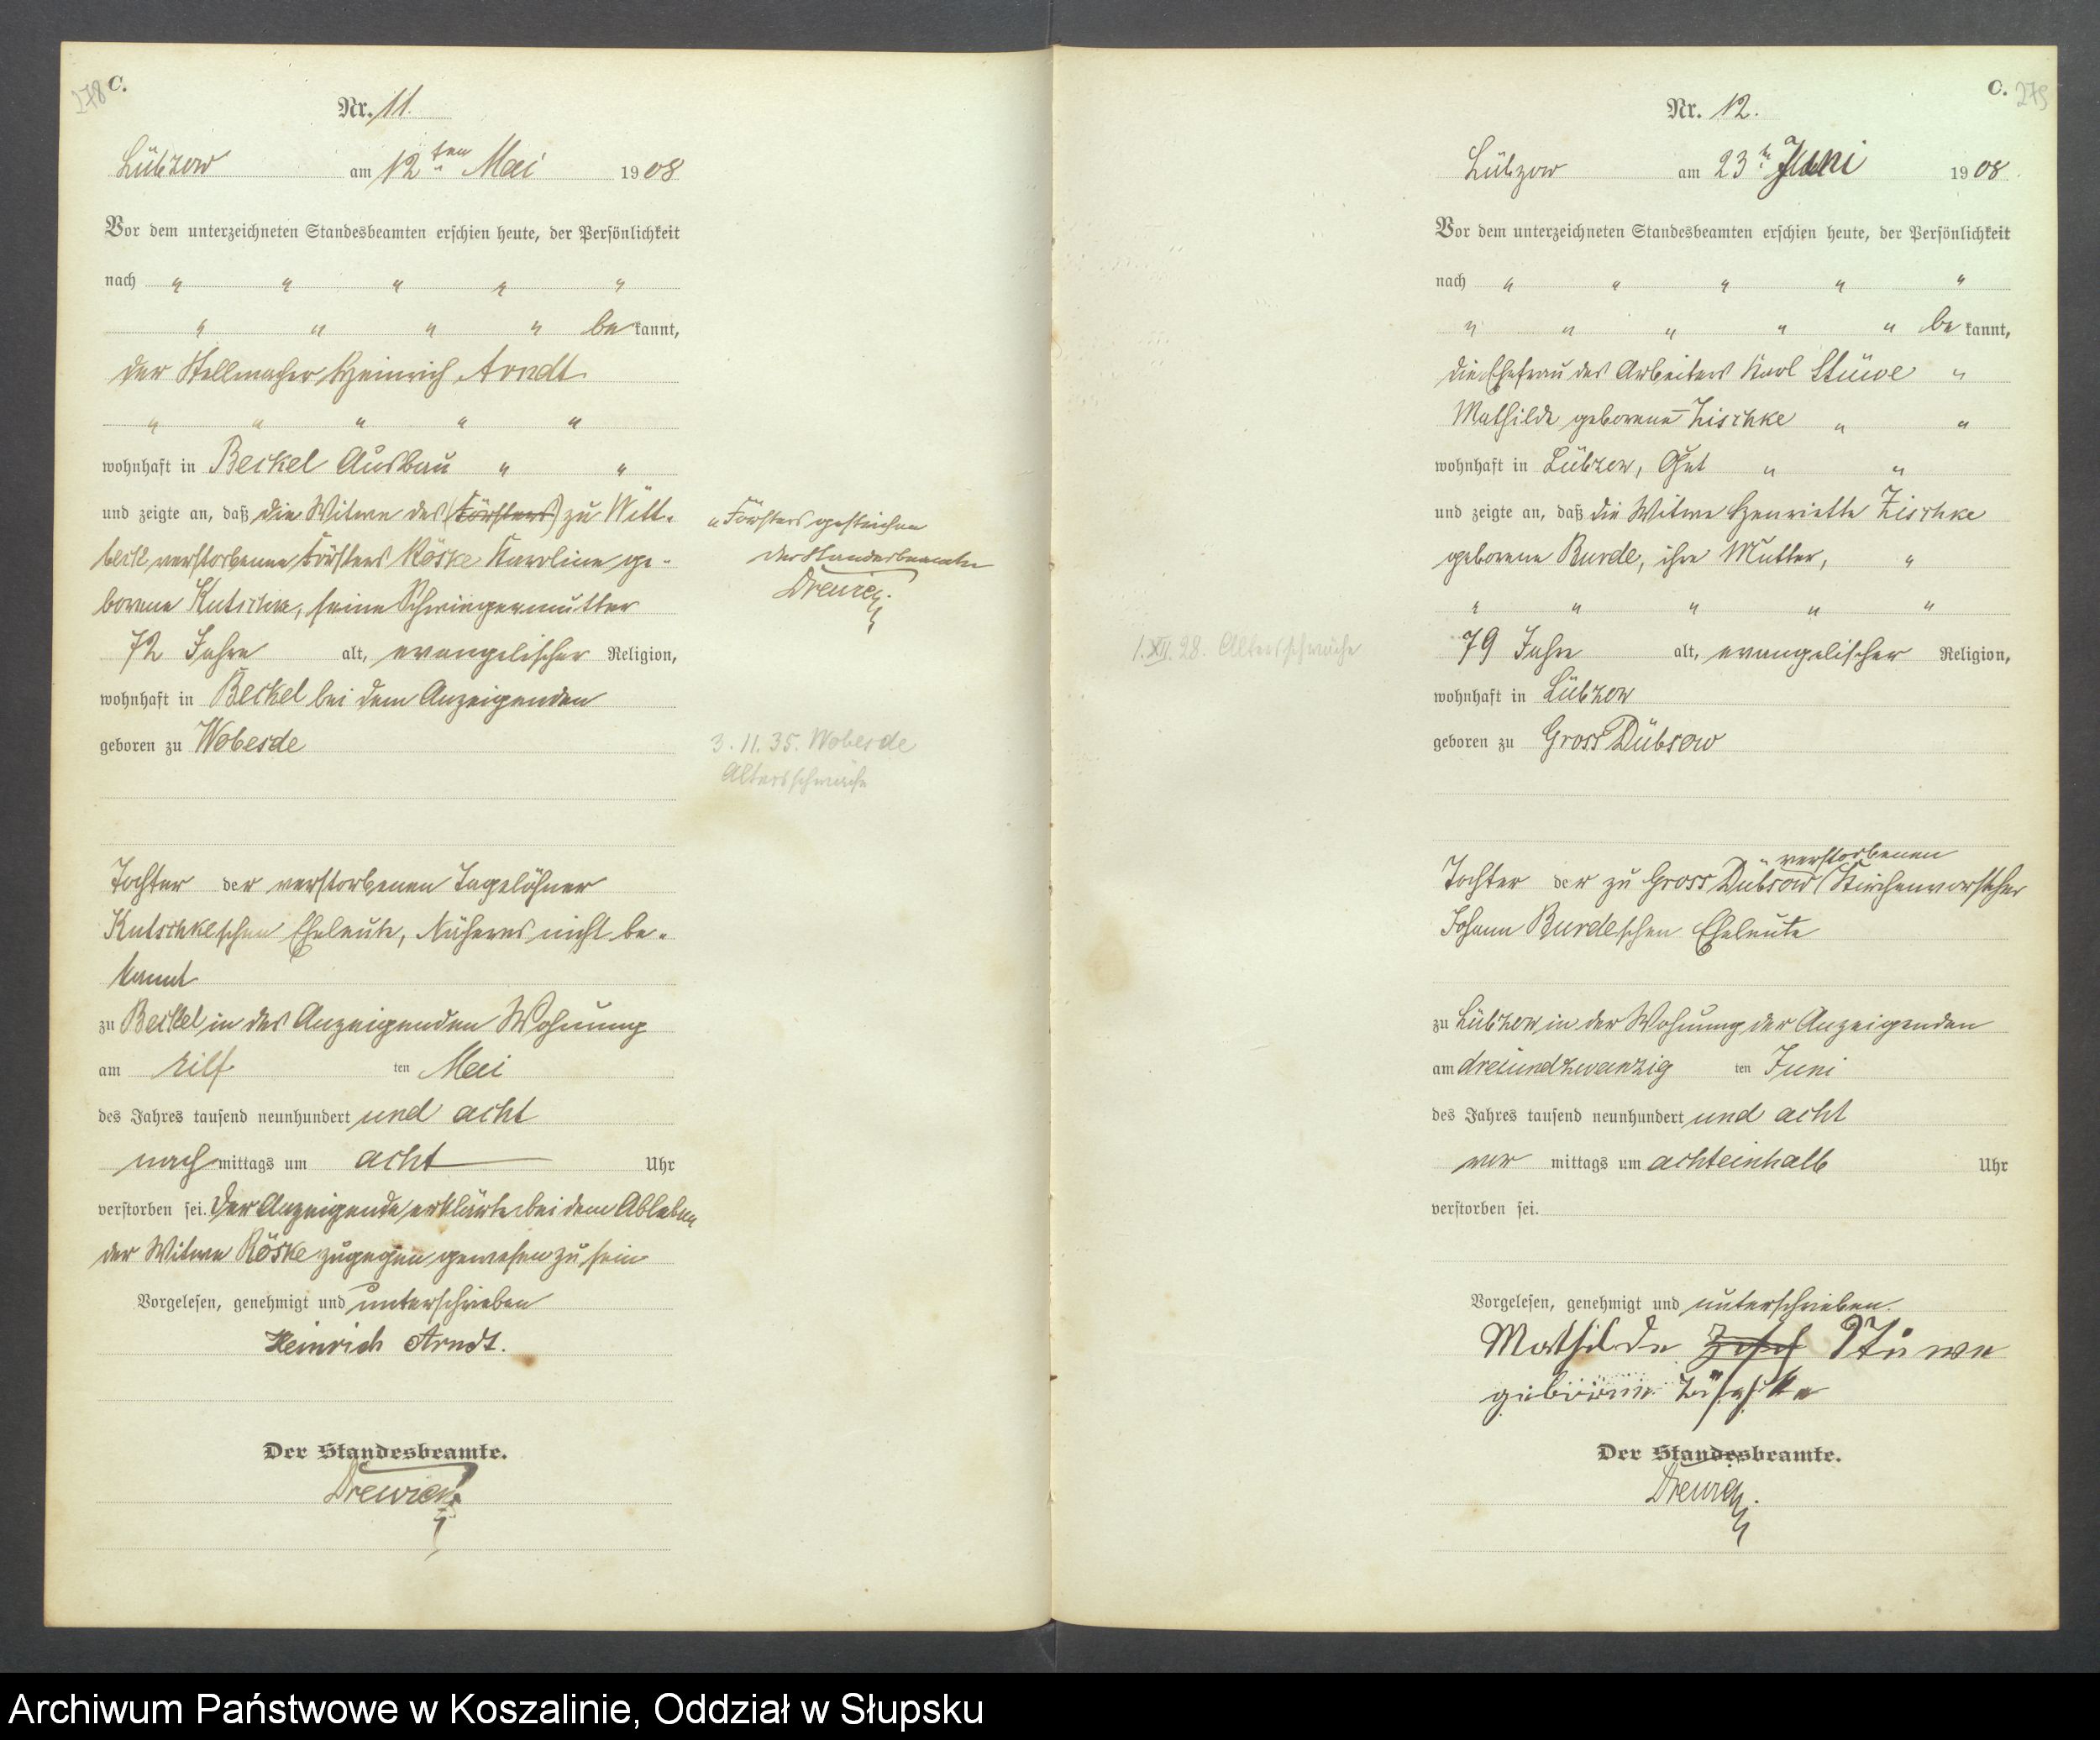 278
C.
Nr. 11.
Lübzow am 12ten Mai 1908
Vor dem unterzeichneten Standesbeamten erschien heute, der Persönlichkeit
nach " " " " "
" " " " be kannt,
der Stellmacher Heinrich Arndt
" " " " "
wohnhaft in Beckel Ausbau " "
und zeigte an, daß die Witwe des (Försters) zu Witt-
beck verstorbenen Försters Röske Karoline ge-
borene Kutschke, seine Schwiegermutter
72 Jahre alt, evangelischer Religion,
wohnhaft in Beckel bei dem Anzeigenden
geboren zu Wobesde
Tochter der verstorbenen Tagelöhner
Kutschkeschen Eheleute, Näheres nicht be-
kannt
zu Beckel in des Anzeigenden Wohnung
am eilf ten Mai
des Jahres tausend neunhundert und acht
nach mittags um acht Uhr
verstorben sei. Der Anzeigende erklärte bei dem Ableben
der Witwe Röske zugegen gewesen zu sein
Vorgelesen, genehmigt und unterschrieben
Heinrich Arndt.
Der Standesbeamte.
Drewick
" Försters gestrichen
Der Standesbeamte
Drewick
3. 11. 35. Wobesde
Altersschwäche
C. 279
Nr. 12.
Lübzow am 23ten Juni 1908.
Vor dem unterzeichneten Standesbeamten erschien heute, der Persönlichkeit
nach " " " " "
" " " " " be kannt,
die Ehefrau des Arbeiters Karl Stüwe "
Mathilde geborene Zischke " "
wohnhaft in Lübzow, Gut " "
und zeigte an, daß die Witwe Henriette Zischke
geborene Burde, ihre Mutter, "
" " " " "
79 Jahre alt, evangelischer Religion,
wohnhaft in Lübzow
geboren zu Gross Dübsow
verstorbenen
Tochter der zu Gross Dübsow Kirchenvorsteher
Johann Burdeschen Eheleute
zu Lübzow in der Wohnung der Anzeigenden
am dreiundzwanzig ten Juni
des Jahres tausend neunhundert und acht
vor mittags um achteinhalb Uhr
verstorben sei.
Vorgelesen, genehmigt und unterschrieben.
Mathilde Stüwe
geborene Zischke
Der Standesbeamte.
Drewick
1. XII. 28. Altersschwäche
Archiwum Państwowe w Koszalinie, Oddział w Słupsku